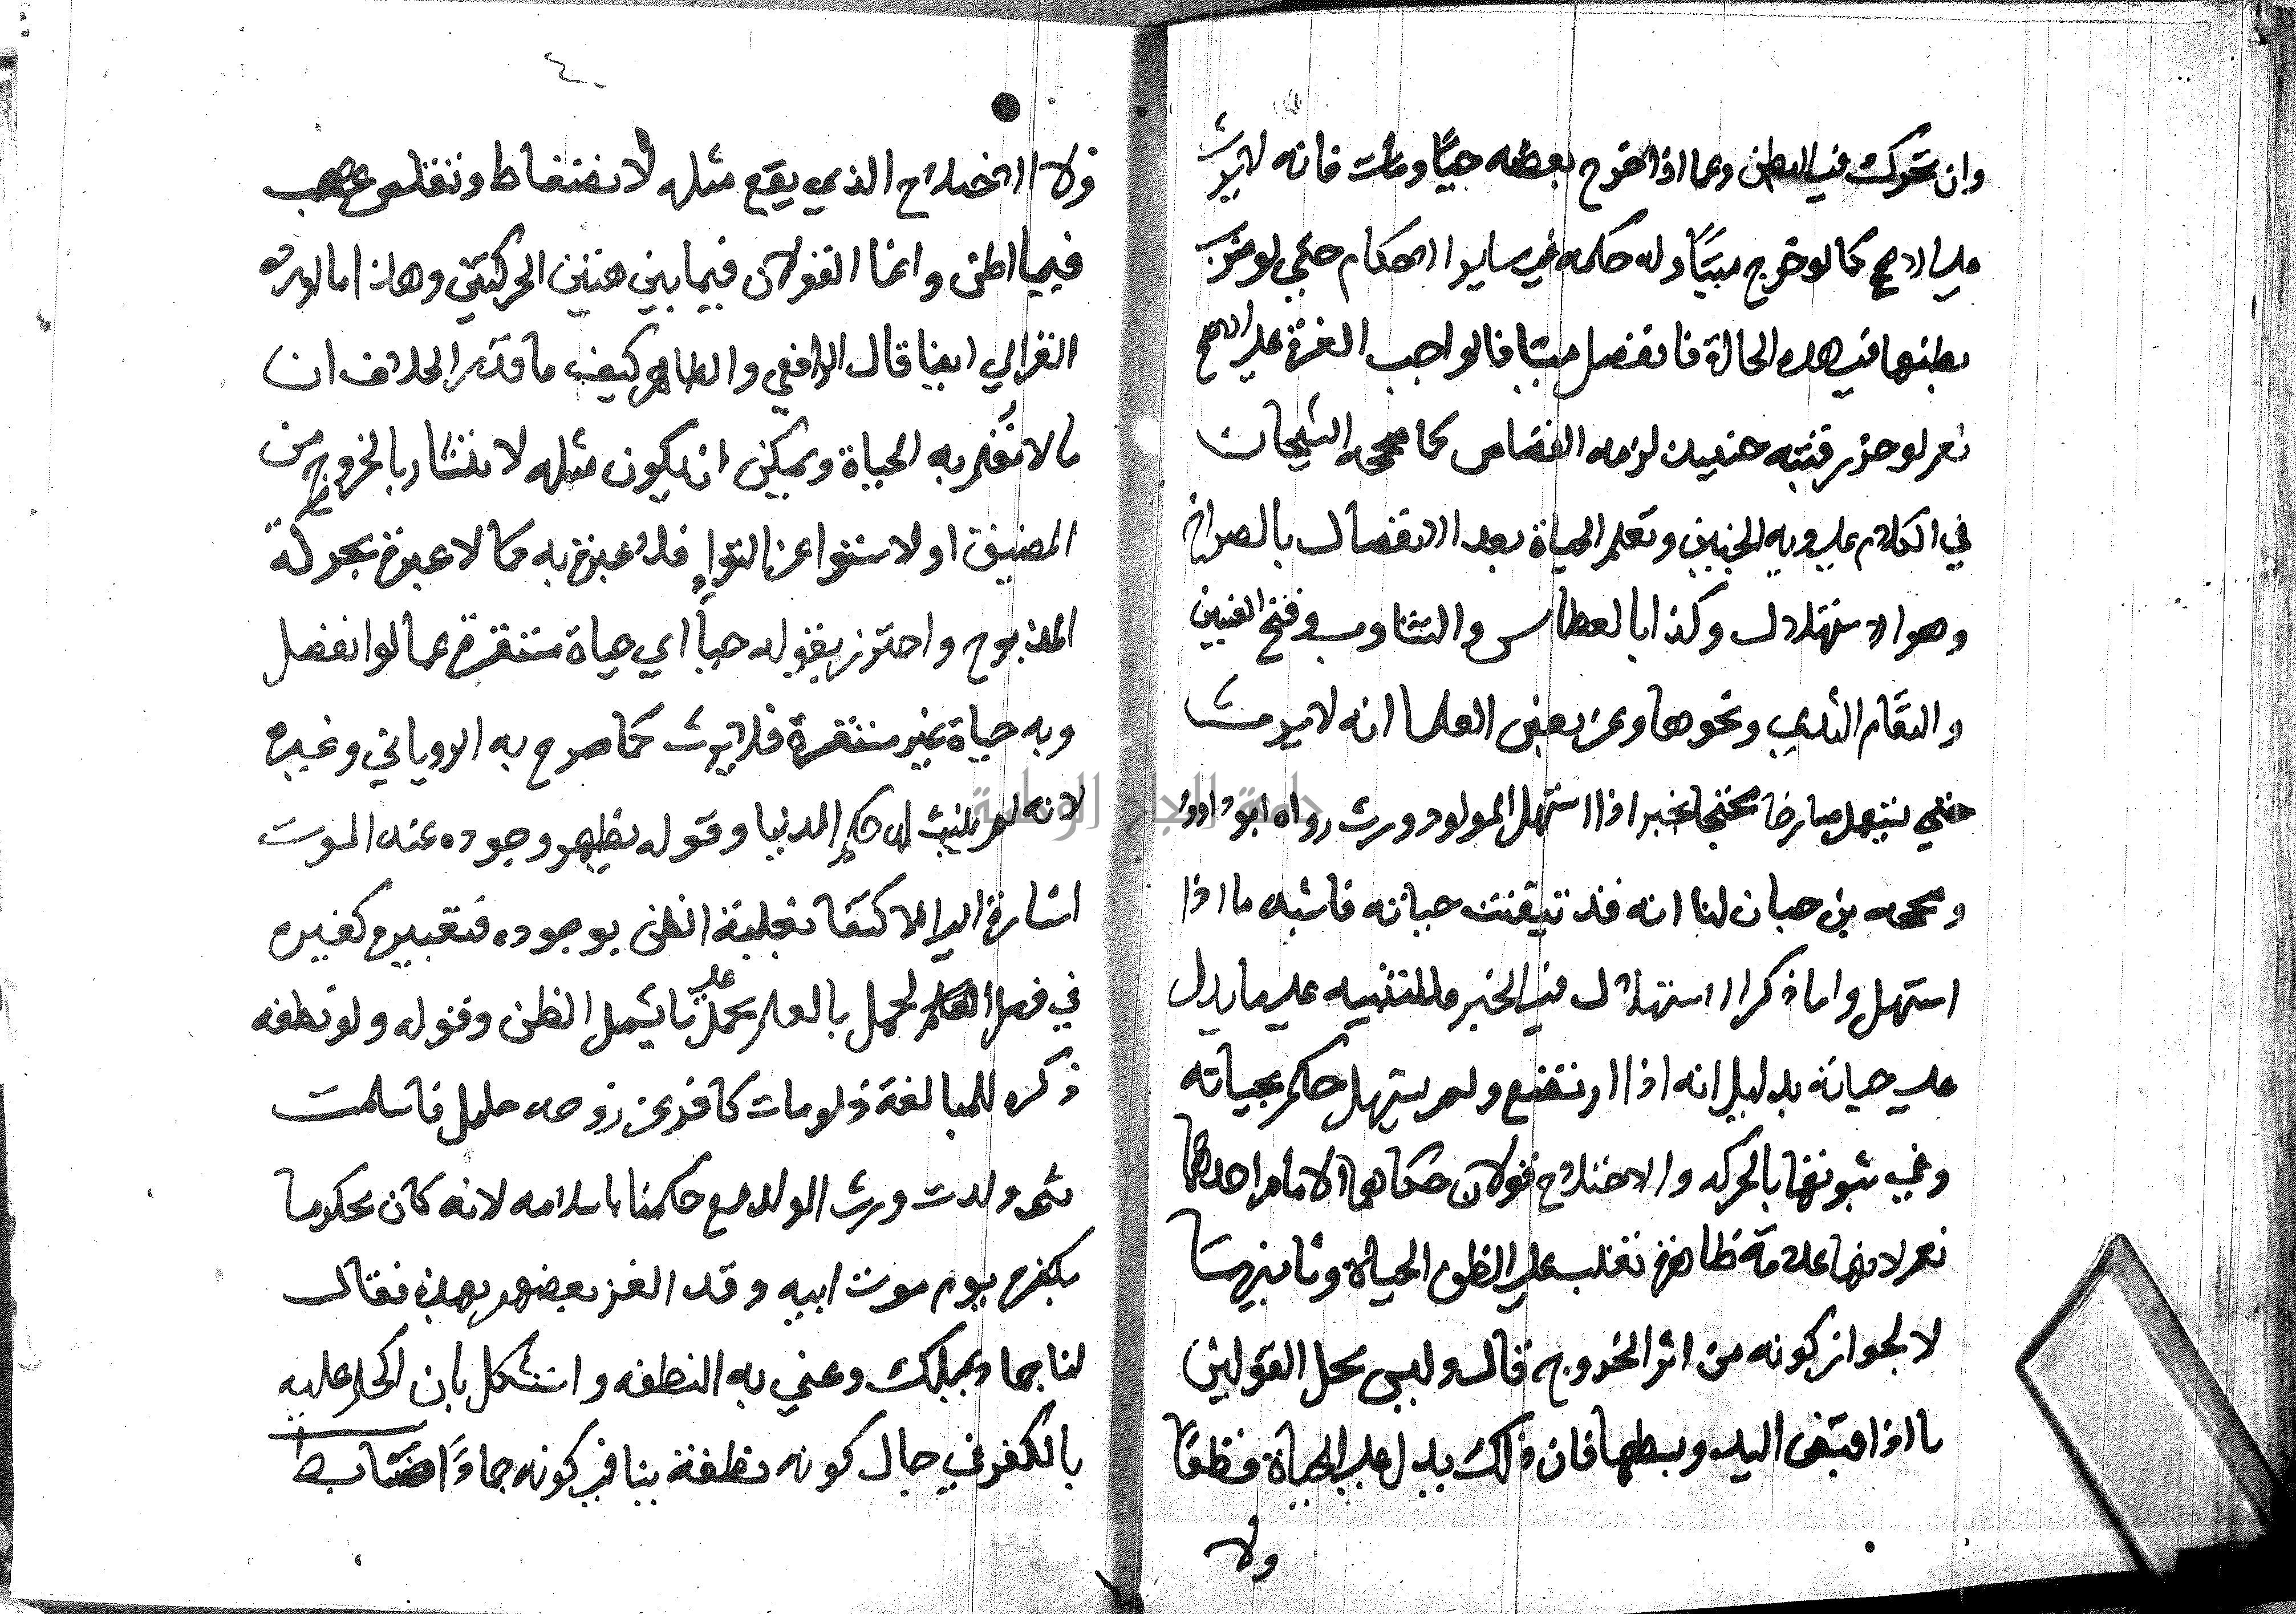 وان تحرك في البطن وعما اذا خرج بعضه حيًا ومات فانه لا يرث
على الاصح كما لو خرج ميتًا وله حكمه في ساير الاحكام حتى لو ضرب
بطنها في هذه الحالة فانفصل ميتا فالواجب الغرة على الاصح
نعم لو حز رقبته حينيذ لزمه القصاص كما صححه الشيخان
في الكلام على دية الجنين وتعلم الحياة بعد الانفصال بالصراخ
وهو الاستهلال وكذا بالعطاس والتثاوب وفتح العينين
والتقام الثدي ونحوها وعن بعض العلما انه لا يرث
حتى يستهل صارخا محتجا بخبر اذا استهل المولود ورث رواه ابو داود
وصححه بن حبان لنا انه قد تيقنت حياته فاشبه ما اذا
استهل واما ذكر الاستهلال في الخبر فللتنبيه على ما يدل
على حياته بدليل انه اذا ارتضع ولم يستهل حكم بحياته
وفي ثبوتها بالحركه والاختلاج قولان حكاهما الامام احدهما
نعم لانها علامة ظاهرة تغلب على الظن الحياة وثانيهما
لا لجواز كونه من اثر الخروج قال وليس محل القولين
ما اذا قبض اليد وبسطها فان ذلك يدل على الحياة قطعًا
ولا
٤
ولا الاختلاج الذي يقع مثله لانضغاط وتقلص عصب
فيما اظن وانما القولان فيما بين هتين الحركتين وهذا ما اورده
الغزالي ايضا قال الرافعي والظاهر كيف ما قدر الخلاف ان
ما لا تعلم به الحياة ويمكن ان يكون مثله لانتشار بالخروج من
المضيق او لاستوا عن التواء فلا عبرة به كما لا عبرة بحركة
المذبوح واحترز بقوله حياً اي حياة مستقرة عما لو انفصل
وبه حياة غير مستقرة فلا يرث كما صرح به الروياني وغيره
لانه لم يثبت له حكم الدنيا وقوله يظهر وجوده عند الموت
اشارة الى الاكتفا بغلبة الظن بوجوده فتعبيره كغيره
في فصل الحمل بالعلم يحمل على ما يشمل الظن وقوله ولو نطفه
ذكره للمبالغة فلو مات كافر عن زوجه حامل فاسلمت
ثم ولدت ورث الولد مع حكمنا باسلامه لانه كان محكوما
بكفره يوم موت ابيه وقد الغز بعضهم بهذه فقال
لنا جماد يملك وعني به النطفه واستشكل بان الحكم عليه
بالكفر في حال كونه نطفة ينافي كونه جمادًا